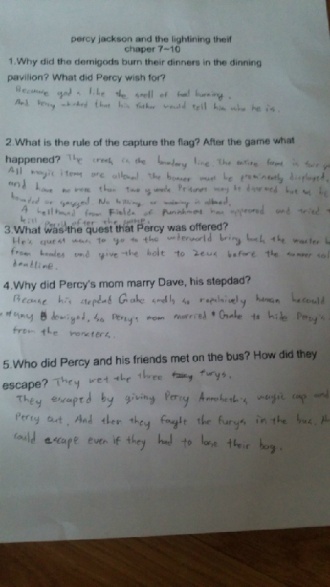 percy jackson and the lightining theif
chaper 7~10
1.Why did the demigods burn their dinners in the dinning
pavilion? What did Percy wish for?
Because gods like the smell of food burning.
And Percy wished that his father would tell him who he is.
2.What is the rule of the capture the flag? After the game what
happened? The creek is the boundary line. The entire forest is
All magic items are allowed. The banner must be prominently displayed,
and have no more than two guards. Prisoner may be disarmed but no be
bounded or gagged. No killing or maiming is allowed.
A hellhound from Fields of Punishment has appeared and tried
kill
3.What was the quest that Percy was offered?
His quest was to go to the underworld bring back the master
from hades and give the bolt to Zeus before the summer
deadline.
4.Why did Percy's mom marry Dave, his stepdad?
Because his stepdad Gabe smells so repulsively human he could
any demigod, so Percy's mom married Gabe to hide Percy
from the monsters.
5.Who did Percy and his friends met on the bus? How did they
escape? They met the three furys.
They escaped by giving Percy Annabeth's magic cap and
Percy out. And then they fought the furys in the bus.
could escape even if they had to lose their bag.